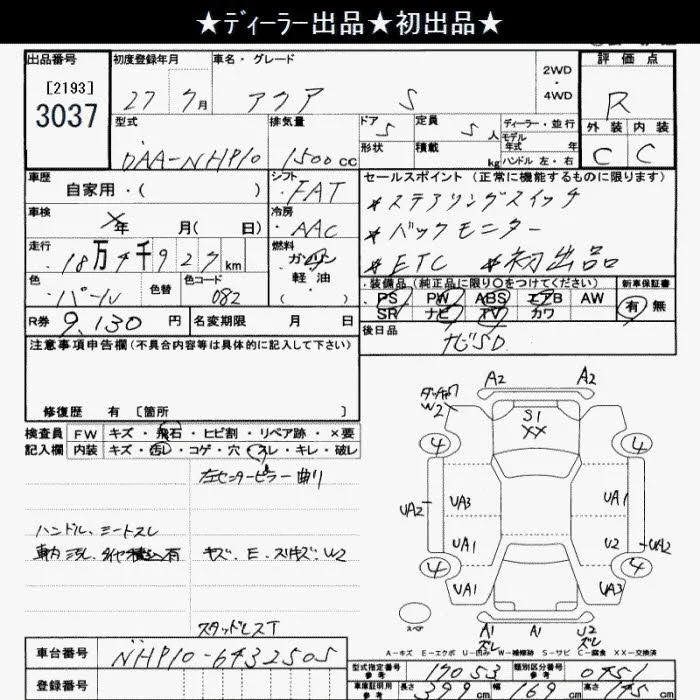 ★ディーラー出品★初出品★
出品番号 初度登録年月 車名・グレード 2WD ・ 4WD 評価点
[2193]
3037 27 7月 アクア S R
型式 排気量 ドア 5 定員 5人 ディーラー・並行 外装 内装
モデル年式 年
DAA-NHP10 1500cc 形状 積載 kg ハンドル 左・右 C C
車歴 シフト セールスポイント (正常に機能するものに限ります)
自家用・( ) FAT *ステアリングスイッチ
車検 年 月( 日) 冷房 AAC *バックモニター
走行 18万4千927km 燃料 ガソリン 軽油 ( ) *ETC *初出品
色 パール 色替 色コード 082 装備品(純正品に限り○をつけてください) 新車保証書
PS PW ABS エアB AW 有 無
SR ナビ TV カワ
R券 9,130円 名変期限 月 日 後日品
ナビSD
注意事項申告欄(不具合内容等は具体的に記入して下さい)
修復歴 有 [箇所 ]
検査員 FW キズ・飛石・ヒビ割・リペア跡・×要
記入欄 内装 キズ・汚レ・コゲ・穴・スレ・キレ・破レ
左センターピラー曲り
ハンドル、シートスレ
キズ・E・スリキズ・W2
スタッドレスT
A2 A2
W2
S1
XX
4 4
UA2 UA3 UA1
UA1 U2 UA2
4 4
UA1 UA3
スペア A1 A1 U2
ズレ ズレ
A-キズ E-エクボ U-凹み W-補修跡 S-サビ C-腐食 XX-交換済
車台番号 NHP10-6432505
型式指定番号 参考 17053 類別区分番号 参考 0451
登録番号 車庫証明用 参考 長さ 399cm 幅 169cm 高さ 145cm